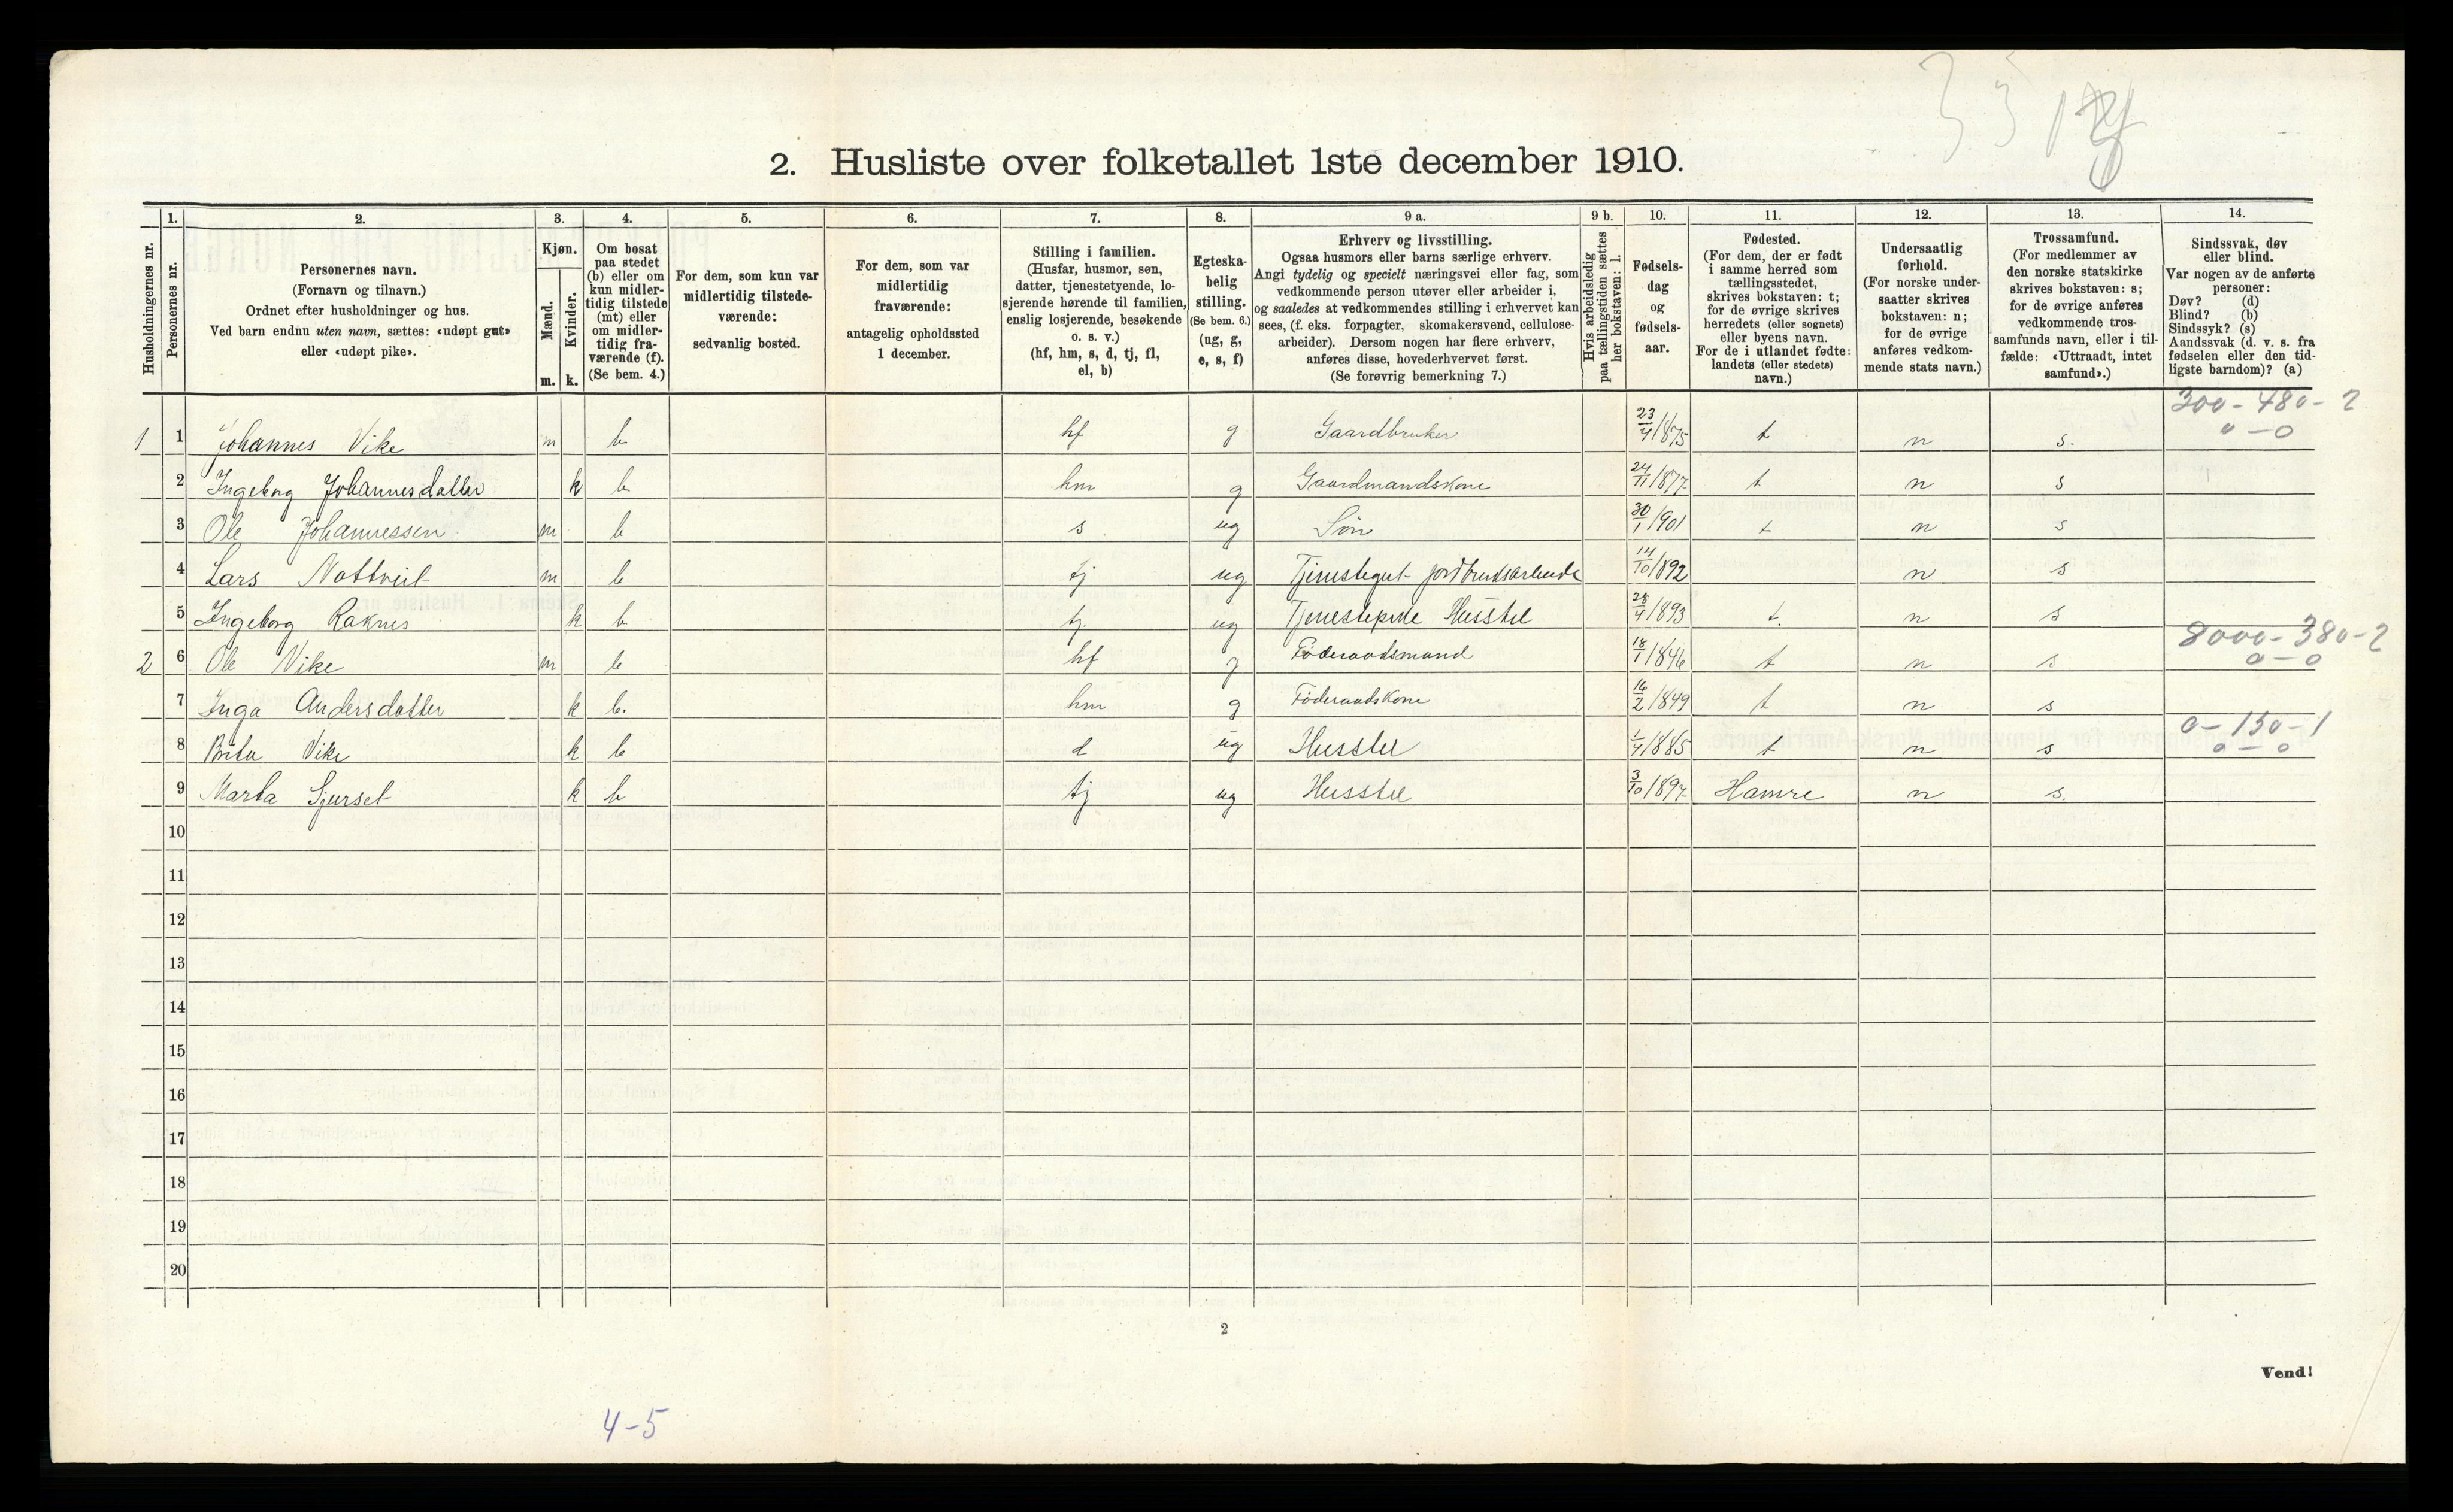 33
2. Husliste over folketallet 1ste december 1910.
1. 2. 3. 4. 5. 6. 7. 8. 9 a. 9 b. 10. 11. 12. 13. 14.
Husholdningernes nr.
Personernes nr.
Personernes navn.
(Fornavn og tilnavn.)
Ordnet efter husholdninger og hus.
Ved barn endnu uten navn, sættes: «udøpt gut»
eller «udøpt pike».
Kjøn.
Mænd.
Kvinder.
m. k.
Om bosat
paa stedet
(b) eller om
kun midler-
tidig tilstede
(mt) eller
om midler-
tidig fra-
værende (f).
(Se bem. 4.)
For dem, som kun var
midlertidig tilstede-
værende:
sedvanlig bosted.
For dem, som var
midlertidig
fraværende:
antagelig opholdssted
1 december.
Stilling i familien.
(Husfar, husmor, søn,
datter, tjenestetyende, lo-
sjerende hørende til familien,
enslig losjerende, besøkende
o. s. v.)
(hf, hm, s, d, tj, fl,
el, b)
Egteska-
belig
stilling.
(Se bem. 6.)
(ug, g,
e, s, f)
Erhverv og livsstilling.
Ogsaa husmors eller barns særlige erhverv.
Angi tydelig og specielt næringsvei eller fag, som
vedkommende person utøver eller arbeider i,
og saaledes at vedkommendes stilling i erhvervet kan
sees, (f. eks. forpagter, skomakersvend, cellulose-
arbeider). Dersom nogen har flere erhverv,
anføres disse, hovederhvervet først.
(Se forøvrig bemerkning 7.)
Hvis arbeidsledig
paa tællingstiden sættes
her bokstaven: l.
Fødsels-
dag
og
fødsels-
aar.
Fødested.
(For dem, der er født
i samme herred som
tællingsstedet,
skrives bokstaven: t;
for de øvrige skrives
herredets (eller sognets)
eller byens navn.
For de i utlandet fødte:
landets (eller stedets)
navn.)
Undersaatlig
forhold.
(For norske under-
saatter skrives
bokstaven: n;
for de øvrige
anføres vedkom-
mende stats navn.)
Trossamfund.
(For medlemmer av
den norske statskirke
skrives bokstaven: s;
for de øvrige anføres
vedkommende tros-
samfunds navn, eller i til-
fælde: «Uttraadt, intet
samfund».)
Sindssvak, døv
eller blind.
Var nogen av de anførte
personer:
Døv? (d)
Blind? (b)
Sindssyk? (s)
Aandssvak (d. v. s. fra
fødselen eller den tid-
ligste barndom)? (a)
300-480-2
0-0
1 1 Johannes Vike m b hf g Gaardbruker 23/4 1875 t n s.
2 Ingeborg Johannesdatter k b hm g Gaardmandskone 24/11 1877 t n s
3 Ole Johannessen m b s ug Søn 30/1 1901 t n s
4 Lars Nottveit m b tj ug Tjenestegut jordbruksarbeide 14/10 1892 n s
5 Ingeborg Raknes k b tj. ug Tjenestepike Husstel 28/4 1893 t. n s
8000-380-2
0-0
2 6 Ole Vike m b hf g Føderaadsmand 18/1 1846 t n s
7 Inga Andersdatter k b. hm g Føderaadskone 16/2 1849 t n s
0-150-1
0-0
8 Brita Vike k b d ug Husstel 1/4 1885 t n s
9 Marta Sjurset k b tj ug Husstel 3/10 1897 Hamre n s.
10
11
12
13
14
15
16
17
18
19
20
2
Vend!
4-5